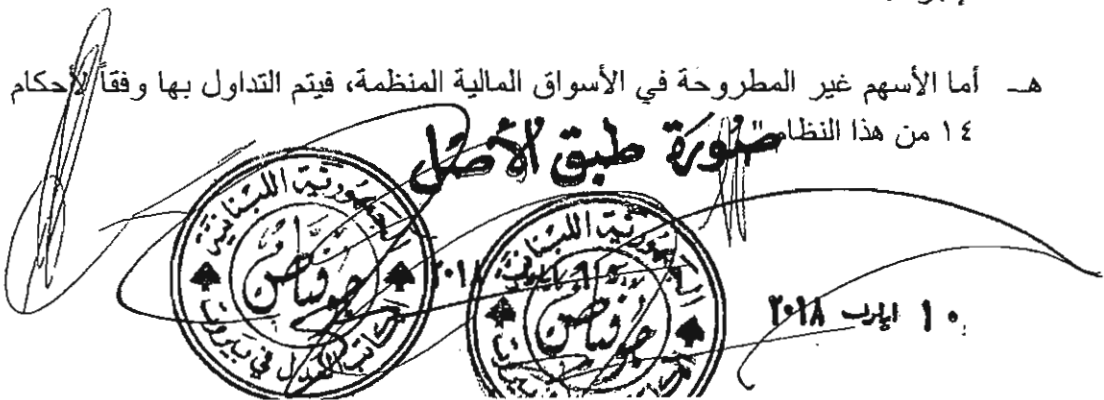 هـ أما الأسهم غير المطروحة في الأسواق المالية المنظمة، فيتم التداول بها وفقاً لأحكام
١٤ من هذا النظام"
صورة طبق الأصل
الجمهورية اللبنانية
الكاتب العدل في بيروت
الجمهورية اللبنانية
٢٠١٨
١٠ ايلول ٢٠١٨